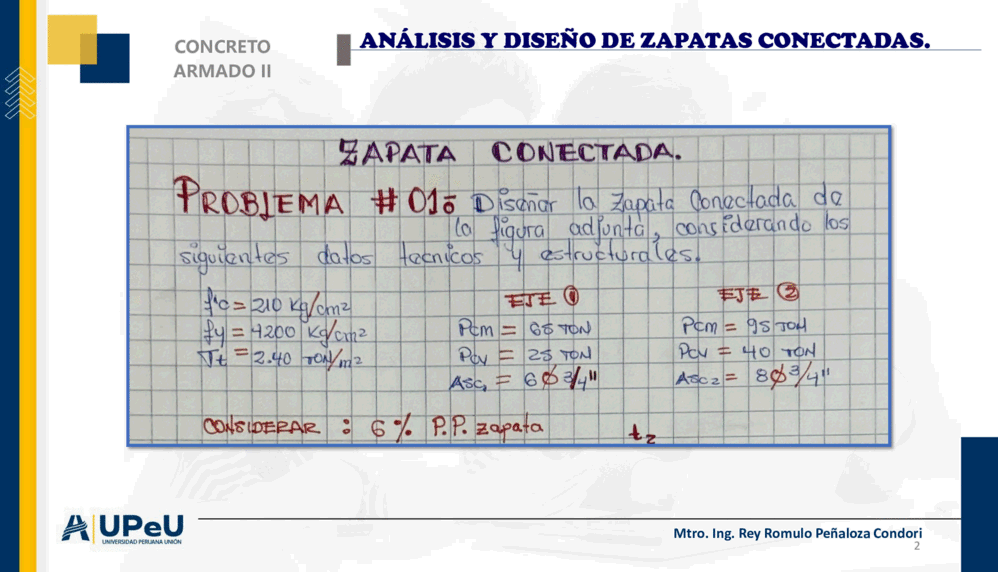 CONCRETO
ARMADO II
ANÁLISIS Y DISEÑO DE ZAPATAS CONECTADAS.
ZAPATA CONECTADA.
PROBLEMA #01: Diseñar la Zapata Conectada de
la figura adjunta, considerando los
siguientes datos tecnicos y estructurales.
f'c = 210 Kg/cm2
fy = 4200 Kg/cm2
σt = 2.40 TON/m2
EJE ①
Pcm = 65 TON
Pcv = 25 TON
Asc1 = 6 Ø 3/4"
EJE ②
Pcm = 95 TON
Pcv = 40 TON
Asc2 = 8Ø 3/4"
CONSIDERAR : 6% P.P. zapata
tz
UPeU
UNIVERSIDAD PERUANA UNIÓN
Mtro. Ing. Rey Romulo Peñaloza Condori
2